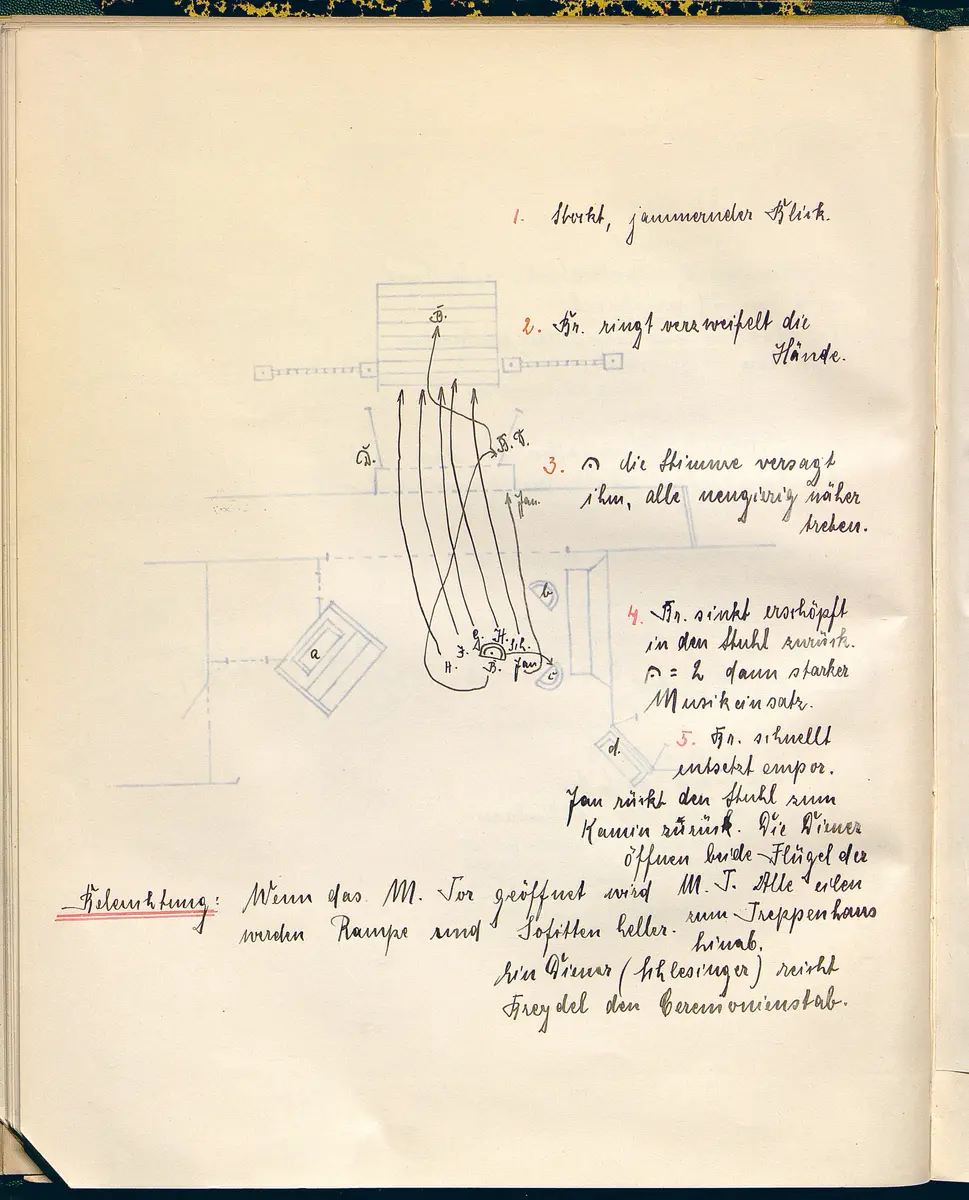 1. Stockt, jammernder Blick.
B.
2. Br. ringt verzweifelt die
Hände.
D.
B. D.
3. 𝄐 die Stimme versagt
ihm, alle neugierig näher
treten.
Jan.
b
4. Br. sinkt erschöpft
in den Stuhl zurück.
𝄐 = 2 dann starker
Musikeinsatz.
a
G. H.
H. J. B. Sch.
Jan
c
d.
5. Br. schnellt
entsetzt empor.
Jan rückt den Stuhl zum
Kamin zurück. Die Diener
öffnen beide Flügel der
M. T. Alle eilen
zum Treppenhaus
hinab.
Beleuchtung: Wenn das M. Tor geöffnet wird
werden Rampe und Sofitten heller.
Ein Diener (Schlesinger) reicht
Breydel den Ceremonienstab.